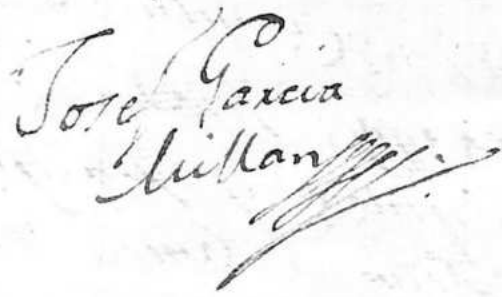 Josef Garcia
Millan